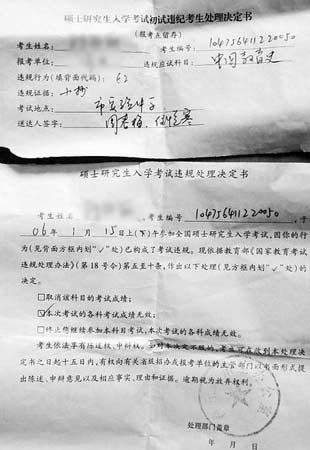 硕士研究生入学考试初试违纪考生处理决定书
(报考点留存)
考生姓名: 考生编号: 104756411220050
报考单位: 违规应试科目: 中国教育史
违规行为(填背面代码): 62
违规证据: 小抄
考试地点: 市实验中学
送达人签字:
硕士研究生入学考试违规处理决定书
考生姓名 考生编号 104756411220050,于
06年1月15日上(下)午参加全国硕士研究生入学考试,因你的行
为(见背面方框内划“√”处)已构成了考试违规。现依据教育部《国家教育考试
违规处理办法》(第18号令)第五至十条,作出以下处理(见方框内划“√”处)的
决定。
□取消该科目的考试成绩;
☑本次考试的各科考试成绩无效;
□终止您继续参加本科目考试,本次考试的各科成绩无效。
考生依法享有陈述权、申辩权。如对本决定不服的,考生可在收到本处理决
定书之日起十五日内,有权向有关省级招办或报考单位的主管部门以书面形式提
出陈述、申辩意见以及相应事实、理由和证据。逾期视为放弃权利。
处理部门盖章
年 月 日